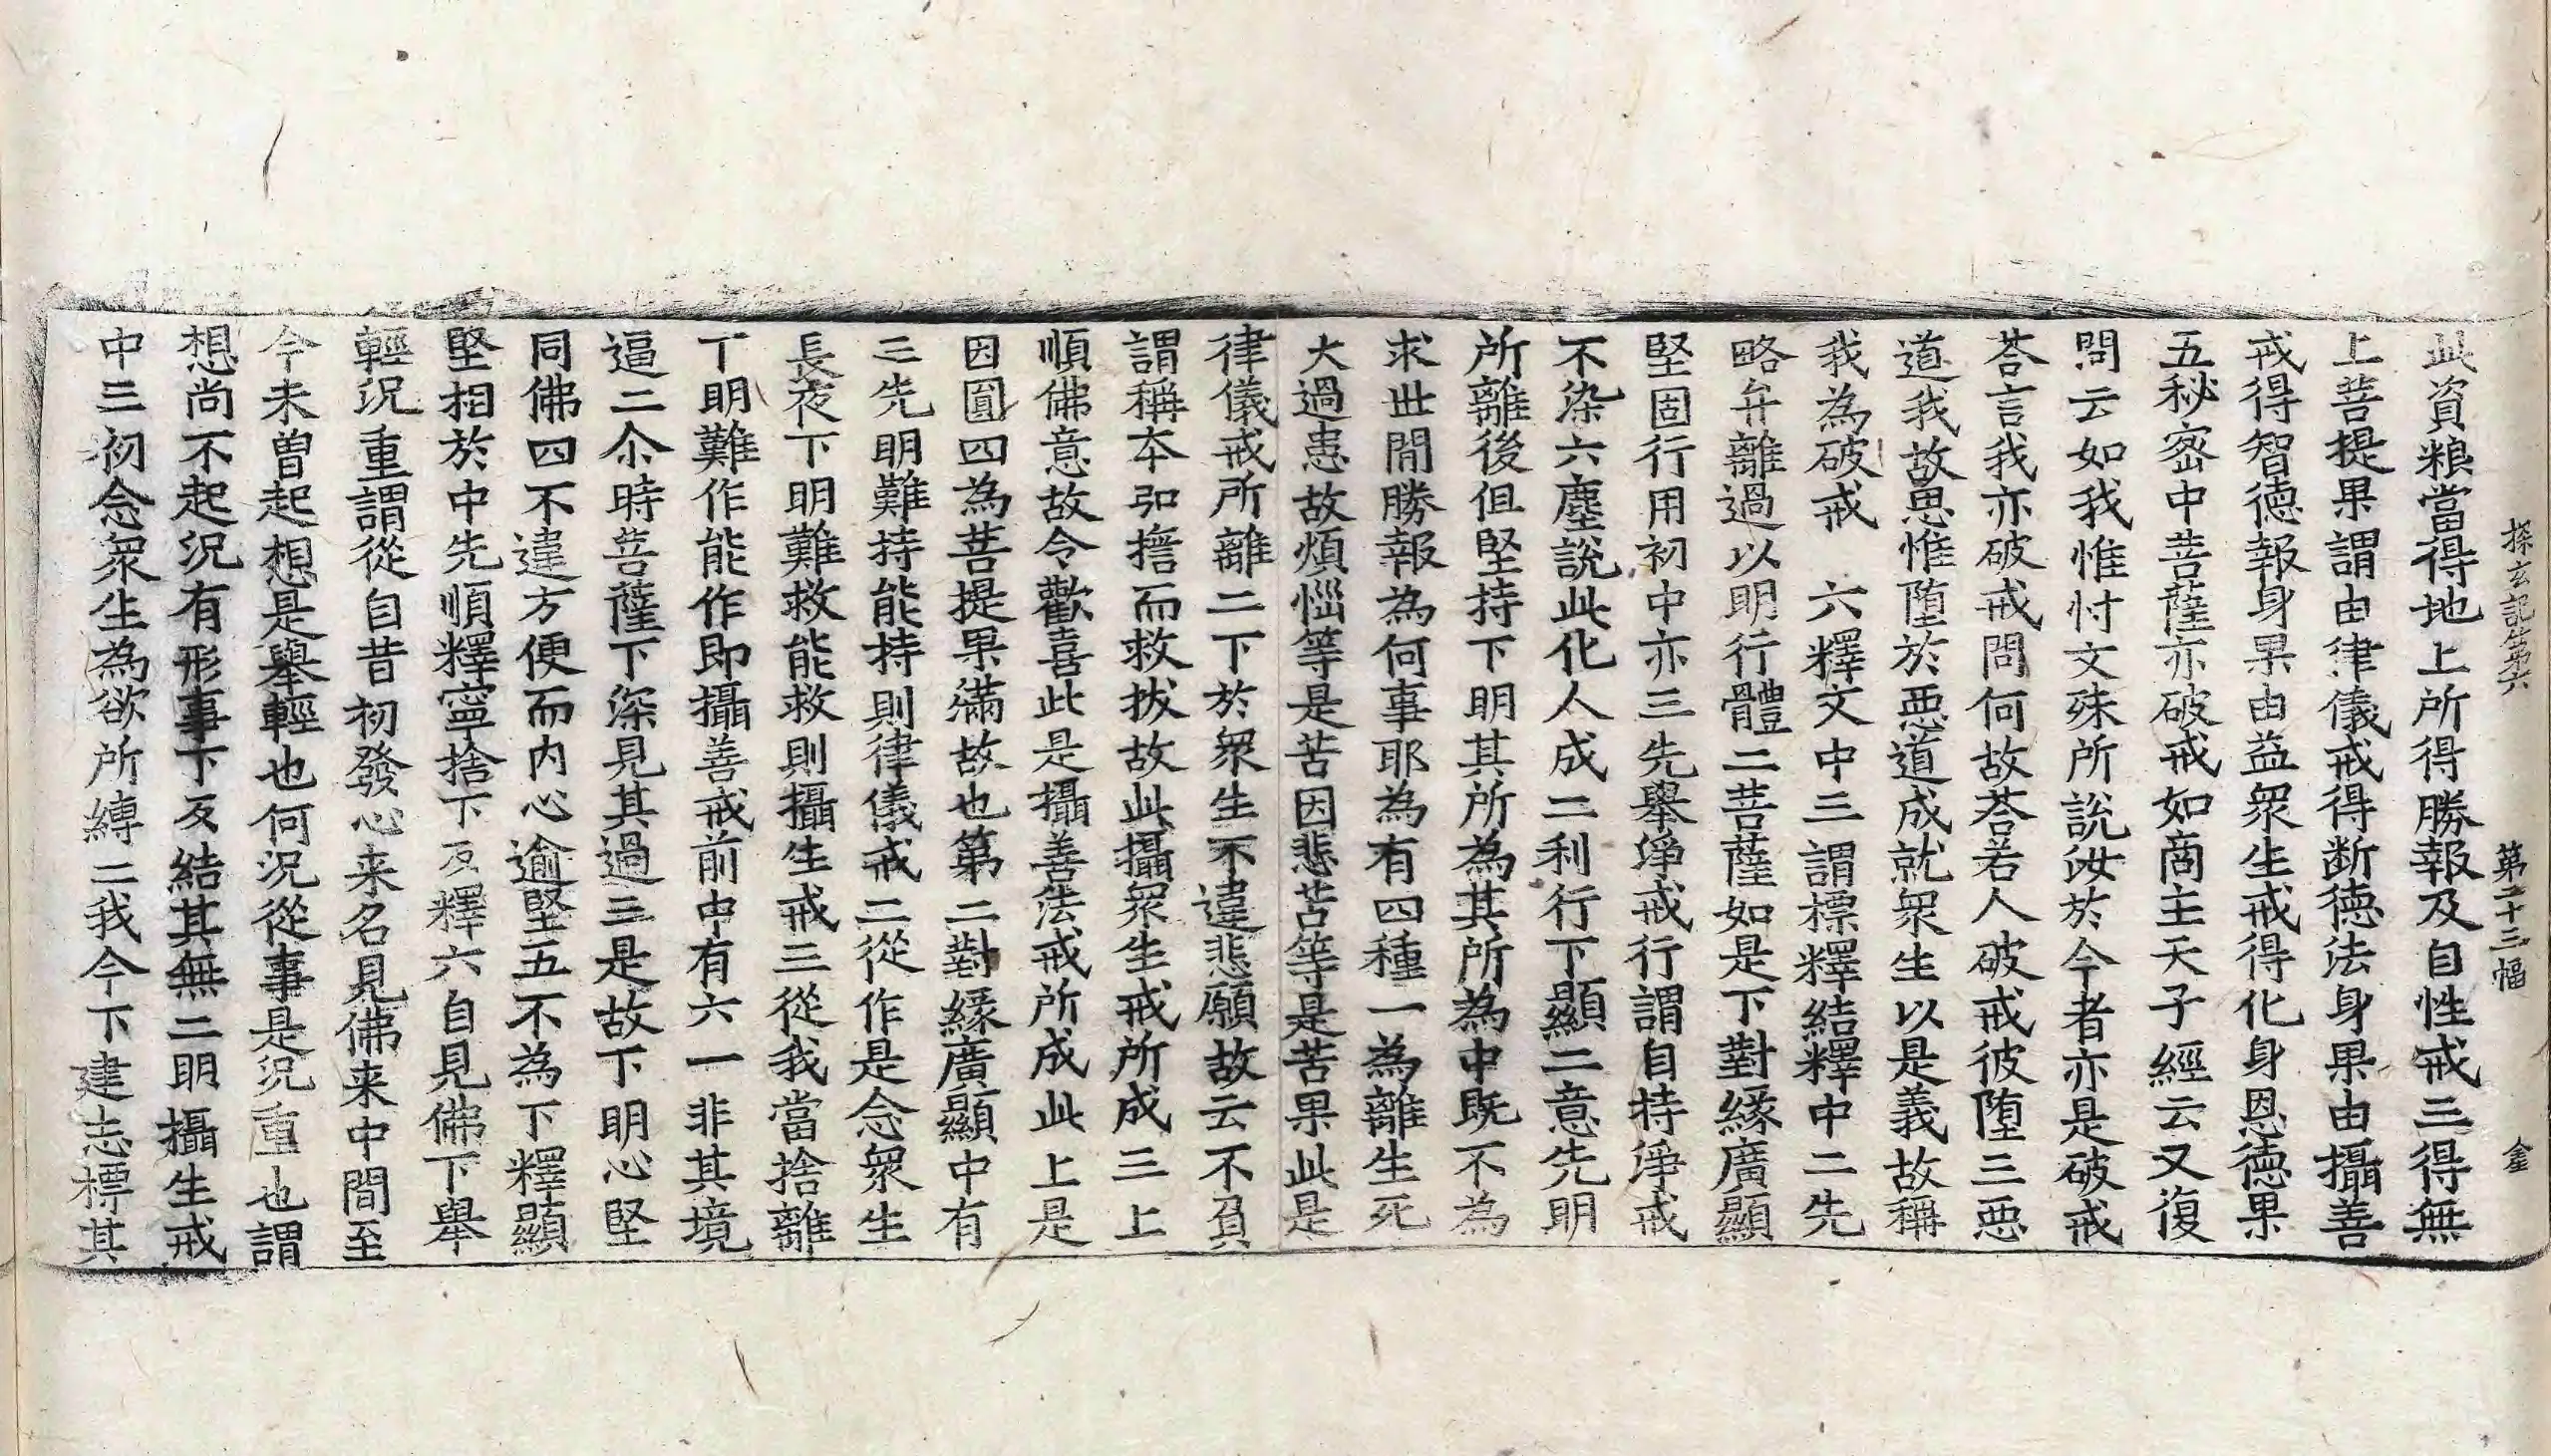 探玄記第六　第二十三幅　金
此資粮當得地上所得勝報及自性戒三得無
上菩提果謂由律儀戒得断德法身果由攝善
戒得智德報身果由益衆生戒得化身恩德果
五秘宻中菩薩亦破戒如商主天子經云又復
問云如我惟忖文殊所說汝於今者亦是破戒
荅言我亦破戒問何故荅若人破戒彼堕三惡
道我故思惟堕於惡道成就衆生以是義故稱
我為破戒　六釋文中三謂標釋結釋中二先
略弁離過以明行體二菩薩如是下對緣廣顯
堅固行用初中亦三先舉淨戒行謂自持淨戒
不染六塵說此化人成二利行下顯二意先明
所離後但堅持下明其所為其所為中既不為
求世間勝報為何事耶為有四種一為離生死
大過患故煩惱等是苦因悲苦等是苦果此是
律儀戒所離二下於衆生不違悲願故云不負
謂稱本弘擔而救拔故此攝衆生戒所成三上
順佛意故令歡喜此是攝善法戒所成此上是
因圓四為菩提果滿故也第二對緣廣顯中有
三先明難持能持則律儀戒二從作是念衆生
長夜下明難救能救則攝生戒三從我當捨離
下明難作能作即攝善戒前中有六一非其境
逼二尒時菩薩下深見其過三是故下明心堅
同佛四不違方便而内心逾堅五不為下釋顯
堅相於中先順釋寧捨下反釋六自見佛下舉
輕況重謂從自昔初發心来名見佛来中間至
今未曾起想是舉輕也何況從事是況重也謂
想尚不起況有形事下反結其無二明攝生戒
中三初念衆生為欲所縛二我今下建志標其